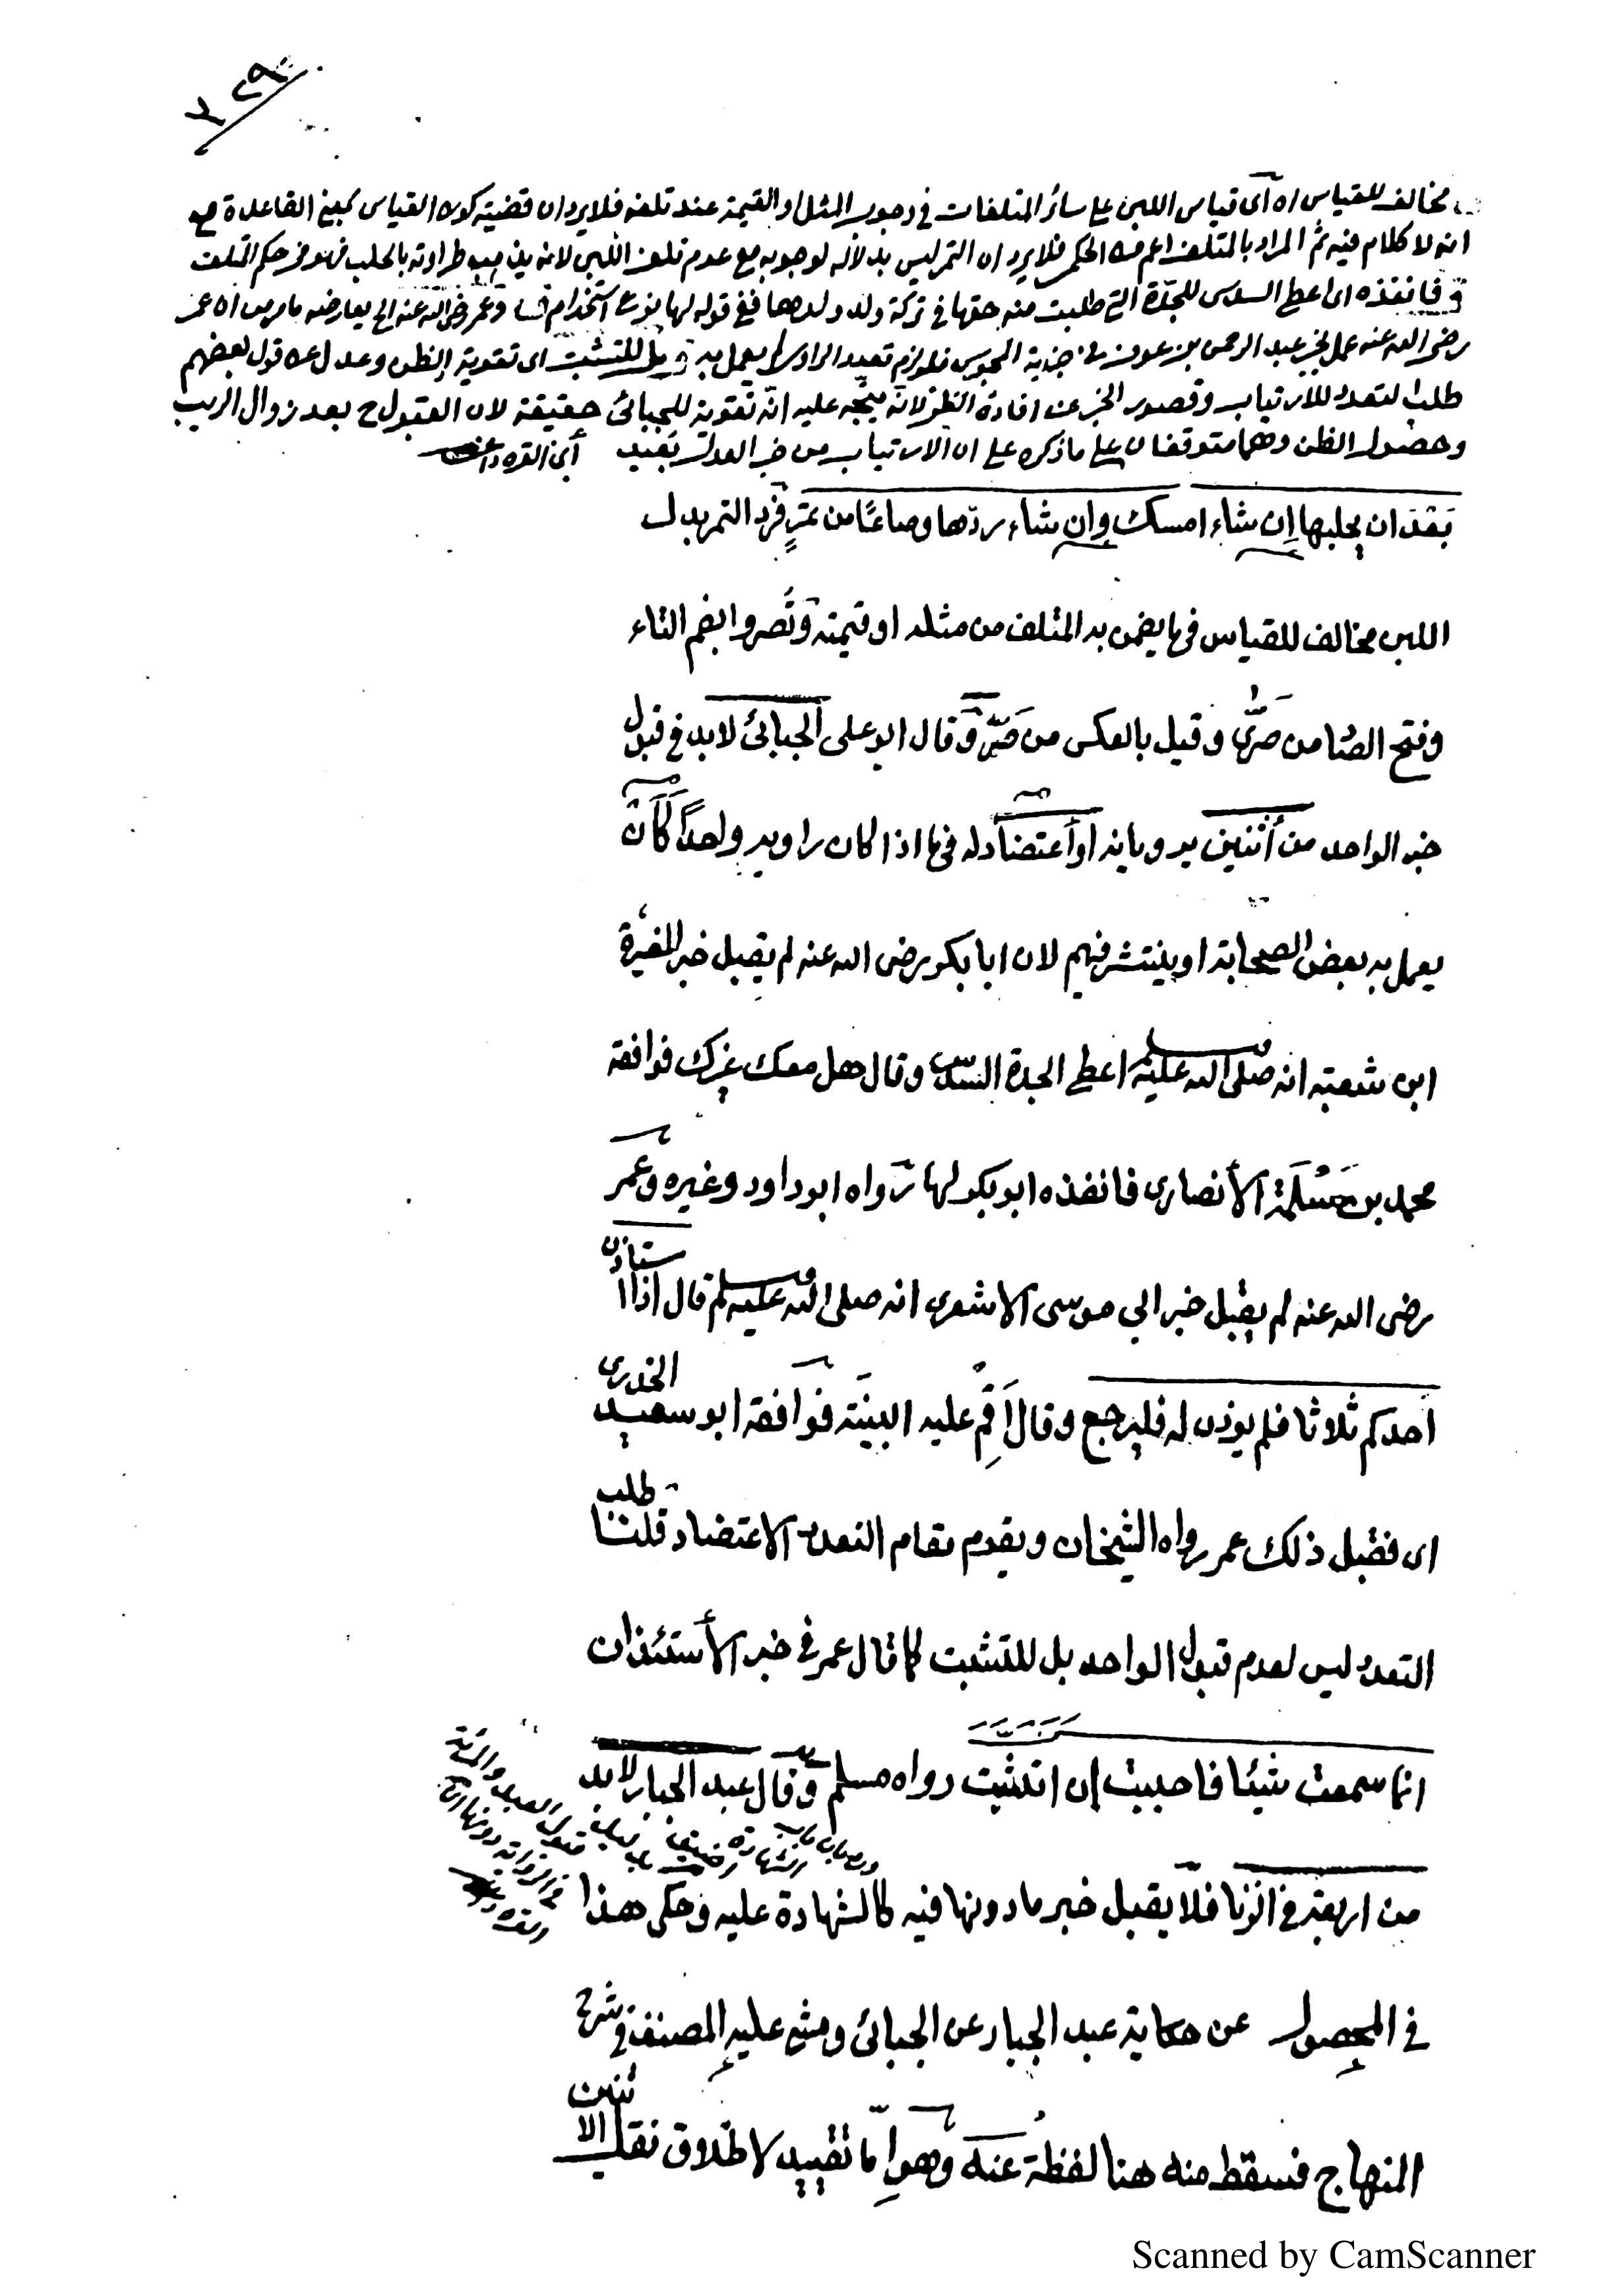 ٢٩٠
مخالف للقياس اه أى قياس اللبن على سائر المتلفات فى وجوب المثل او القيمة عند تلفه فلا يرد ان قضية كون القياس بمعنى القاعدة مع
انه لا كلام فيه ثم المراد بالمتلف اعم من الحكمى فلا يرد ان التمر ليس بدلا له لوجوبه مع عدم تلف اللبن لانه يذهب طراوته بالحلب فهو فى حكم التلف
فانفذه اى اعطى السدس للجدة التى طلبت منه حقها فى تركة ولد ولدها ففى قوله لها نوع استخدام وعمر رضى الله عنه الخ يعارضه ما مر من ان عمر
رضى الله عنه عمل بخبر عبد الرحمن بن عوف فى جزية المجوس فلو لزم تعدد الراوى لم يعمل به بل للتثبت اى تقوية الظن وعدل عن قول بعضهم
طلب التعدد للارتياب وقصور الخبر عن افادة الظن لانه يتجه عليه انه تقوية للجبائى حقيقة لان القبول ح بعد زوال الريب
وحصول الظن وهما متوقفان على ما ذكره على ان الارتياب من خبر العدل بعيد ابن القره داغى
بَعْدَ ان يحلبها إن شاء امسك وإن شاء ردّها وصاعًا من تمرٍ فرد التمر بدل
اللبن مخالف للقياس فيما يضمن به المتلف من مثله او قيمته وتُصروا بضم التاء
وفتح الصاد من صرّى وقيل بالعكس من صَرَّ وقال ابو على الجبائى لا بد فى قبول
خبر الواحد من أثنين يرويانه او أعتضاد له فيما اذا كان راويه واحداً كَأَنْ
يعمل به بعض الصحابة او ينتشر فيهم لان ابا بكر رضى الله عنه لم يقبل خبر المغيرة
ابن شعبة انه صلى الله عليه وسلم اعطى الجدة السدس وقال هل معك غيرك فوافقه
محمد بن مَسْلَمَة الأنصارى فانفذه ابو بكر لها رواه ابو داود وغيره وعمر
رضى الله عنه لم يقبل خبر ابي موسى الاشعرى انه صلى الله عليه وسلم قال اذا استاذن
احدكم ثلاثا فلم يوذن له فليرجع وقال أَقِمْ عليه البينة فوافقه ابو سعيد الخدرى
اى فقبل ذلك عمر رواه الشيخان ويقوم مقام التعدد الاعتضاد قلنا طلب
التعدد ليس لعدم قبول الواحد بل للتثبت كما قال عمر فى خبر الأستئذان
انما سمعت شيئا فاحببت إن اتثبت رواه مسلم وقال عبد الجبار لا بد
من اربعة فى الزنا فلا يقبل خبر ما دونها فيه كالشهادة عليه وحكى هذا
فى المحصول عن حكاية عبد الجبار عن الجبائى ومشى عليه المصنف فى شرح
المنهاج فسقط منه هنا لفظة عنه وهو إما تقييد لاطلاق نقل الاثنين
Scanned by CamScanner